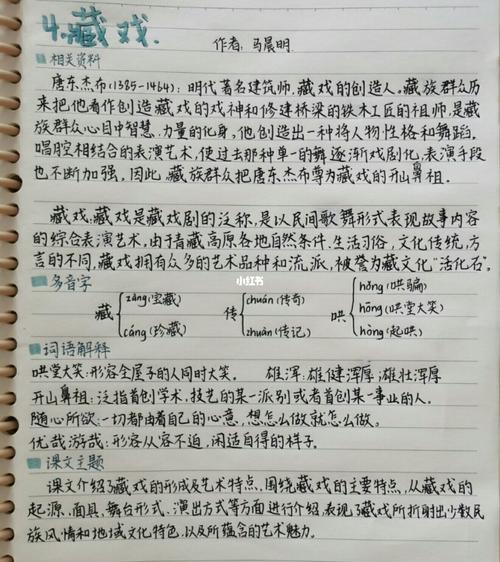 4.藏戏.
作者:马晨明.
相关资料
唐东杰布(1385-1464):明代著名建筑师,藏戏的创造人。藏族群众历
来把他看作创造藏戏的戏神和修建桥梁的铁木工匠的祖师,是藏
族群众心目中智慧、力量的化身,他创造出一种将人物性格和舞蹈、
唱腔相结合的表演艺术,使过去那种单一的舞逐渐戏剧化,表演手段
也不断加强,因此,藏族群众把唐东杰布尊为藏戏的开山鼻祖.
藏戏:藏戏是藏戏剧的泛称,是以民间歌舞形式表现故事内容
的综合表演艺术,由于青藏高原各地自然条件、生活习俗,文化传统,方
言的不同,藏戏拥有众多的艺术品种和流派,被誉为藏文化“活化石”。
小红书
多音字
藏 zàng(宝藏) cáng(珍藏) 传 chuán(传奇) zhuàn(传记) 哄 hǒng(哄骗) hōng(哄堂大笑) hòng(起哄)
词语解释
哄堂大笑:形容全屋子的人同时大笑。 雄浑:雄健浑厚;雄壮浑厚
开山鼻祖:泛指首创学术,技艺的某一派别或者首创某一事业的人.
随心所欲:一切都由着自己的心意,想怎么做就怎么做。
优哉游哉:形容从容不迫,闲适自得的样子.
课文主题
课文介绍了藏戏的形成及艺术特点、围绕藏戏的主要特点,从藏戏的
起源、面具、舞台形式、演出方式等方面进行介绍,表现了藏戏所折射出少数民
族风情和地域文化特色,以及所蕴含的艺术魅力。